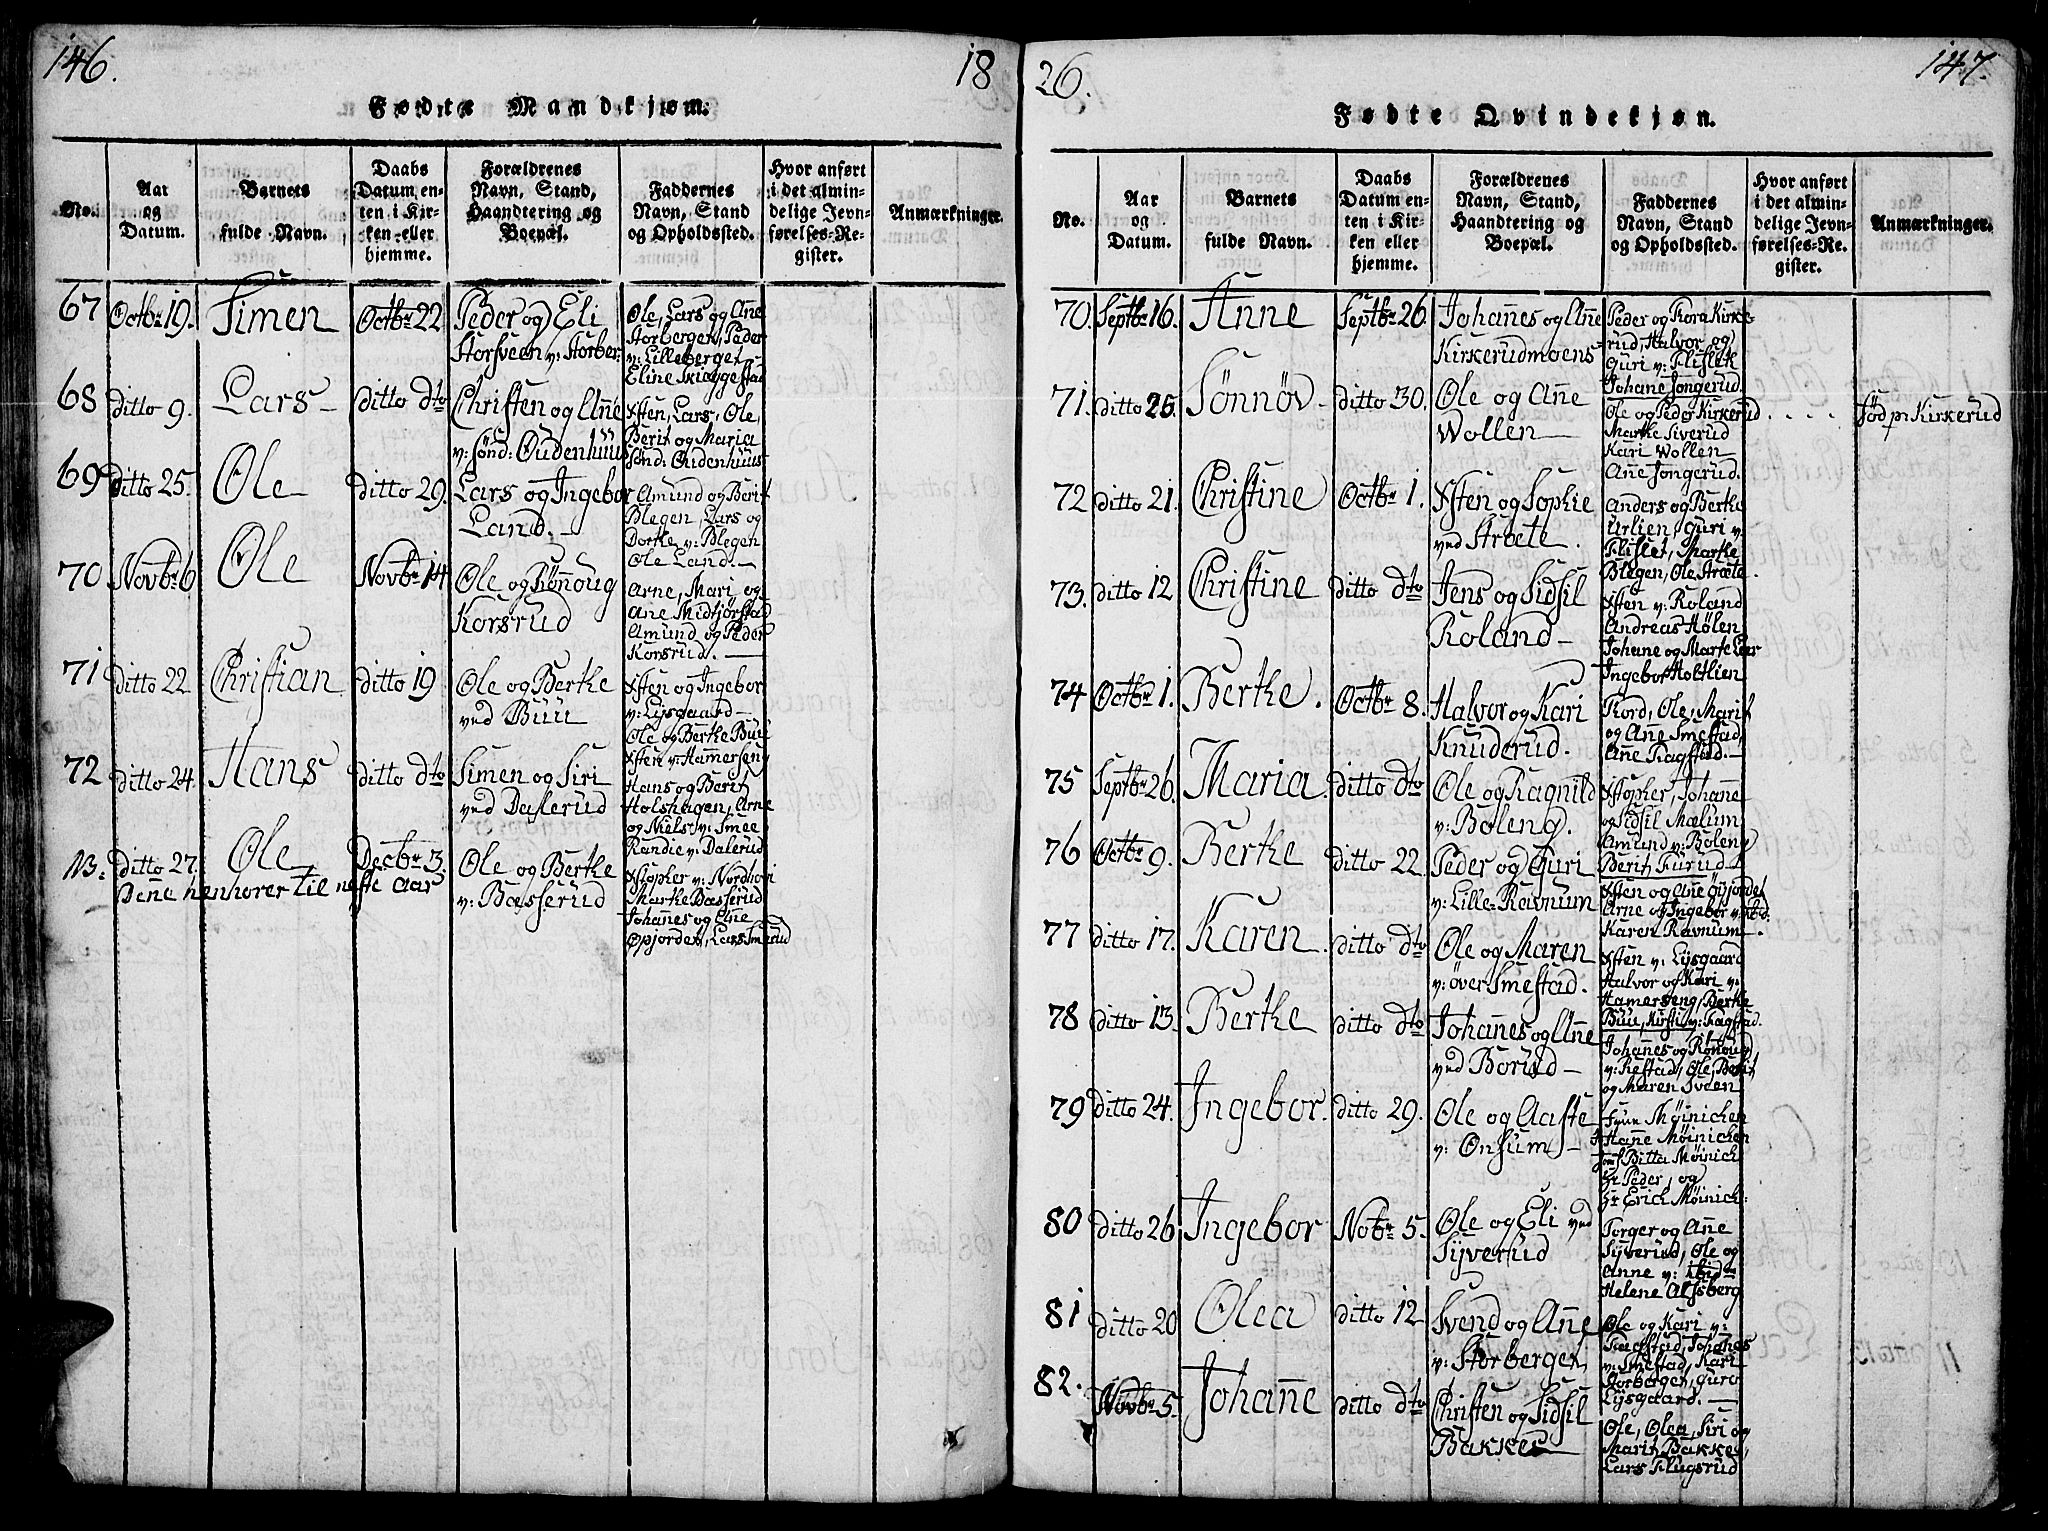 146.
18
Fødte Mandkjøm.
No.
Aar
og
Datum.
Barnets
fulde Navn.
Daabs
Datum en-
ten i Kir-
ken eller
hjemme.
Forældrenes
Navn, Stand,
Haandtering og
Boepæl.
Faddernes
Navn, Stand
og Opholdssted.
Hvor anført
i det almin-
delige Jevn-
førelses-Re-
gister.
Anmærkninger.
67
Octbr 19.
Simen
Octbr 22
Peder og Eli
Storsveen v: Storber:
Ole, Lars og Ane
Storbergen, Peder
v: Lillebergen
Eline Skiæggestad
68
Ditto 9.
Lars
Ditto Dto
Christen og Anne
v: Sønd: Oudenhuus
Xsten, Lars, Ole,
Berit og Maria
Sønd: Oudenhuus
69
Ditto 25.
Ole
Ditto 29.
Lars og Ingebor
Land.
Amund og Berit
Blegen, Lars og
Dorte v: Blegen
Ole Land.
70
Novbr 6
Ole
Novbr 14
Ole og Rønnoug
Korsrud
Arne, Mari og
Ane Midtfjørstad
Amund og Peder
Korsrud.
71
Ditto 22
Christian
Ditto 19
Ole og Berthe
ved Buu
Xsten og Ingebor
v: Lysgaard
Ole og Berthe Buu
Xsten v: Hammerseng
72
Ditto 24.
Hans
Ditto Dto
Simen og Siri
ved Daslerud
Hans og Berit
Holshagen, Arne
og Niels v: Smee
Randie v: Dalerud
NB.
Ditto 27.
Ole
Decbr 3.
Ole og Berthe
v: Basserud
Xstopher v: Nordhovi
Marthe Basserud
Johannes og Ane
Opjordet, Lars Smerud
Dene henhører til neste Aar
26.
147.
Fødte Qvindekjøn.
No.
Aar
og
Datum.
Barnets
fulde Navn.
Daabs
Datum en-
ten i Kir-
ken eller
hjemme.
Forældrenes
Navn, Stand,
Haandtering og
Boepæl.
Faddernes
Navn, Stand
og Opholdssted.
Hvor anført
i det almin-
delige Jevn-
førelses-Re-
gister.
Anmærkninger.
70.
Septbr 16.
Anne
Septbr 26.
Johannes og Anne
Kirkerudmoens
Peder og Thora Kirke-
rud, Halvor og
Guri v: Flislek
Johane Jongerud.
71.
Ditto 25.
Sønnøv
Ditto 30.
Ole og Ane
Wollen
Ole og Peder Kirkerud
Marthe Siverud
Kari Wollen
Ane Jongerud.
Fød p: Kirkerud
72
Ditto 21.
Christine
Octbr 1.
Xsten og Sophie
ved Stræte.
Anders og Berthe
Urlien, Guri v:
Fliflet, Marthe
Blegen, Ole Stræte.
73.
Ditto 12
Christine
Ditto Dto
Jens og Sidsil
Roland
Xsten v: Roland
Andreas Hølen
Johane og Marte Lær
Ingebor Holtlien
74
Octbr 1.
Berthe.
Octbr 8.
Halvor og Kari
Knuderud.
Thord, Ole, Marit
og Ane Smestad,
Anne Fagstad.
75
Septbr 26.
Maria.
Ditto Dto
Ole og Ragnild
v: Boleng.
Xstopher, Johanne
og Sidsil Mælum
Amund v: Boleng
Berit Furud
76
Octbr 9.
Berthe
Ditto 22
Peder og Guri
v: Lille-Ravnum
Xsten og Anne Øyjordet
Arne og Ingebor v: Ibid.
Karen Ravnum.
77
Ditto 17.
Karen
Ditto Dto
Ole og Maren
v: Øver Smestad.
Xsten v: Lysgaard
Halvor og Kari v:
Hamerseng, Berthe
Buu, Kirsti v: Fagstad.
78
Ditto 13.
Berthe
Ditto Dto
Johannes og Anne
ved Borud
Johanes og Rønnoug
v: Refstad, Ole, Berit
og Maren Sveen
79
Ditto 24.
Ingebor.
Ditto 29.
Ole og Aaste
v: Onsum
Møinichen
Hanne Møinichen
Jomf Bitta Møinich
Hr Peder, og
Hr Erich Møinich:
80
Ditto 26
Ingebor
Nobr 5.
Ole og Eli ved
Syverud
Torger og Anne
Syverud, Ole og
Anne v: Ibid
Helene Alfsberg
81
Ditto 20
Olea
Ditto 12
Svend og Anne
v: Storbergen
Ole og Kari v:
Fagstad, Johanes
v: Smestad, Kari
Storbergen, Guro
Lysgaard.
82.
Novbr 5.
Johanne
Ditto Dto
Christen og Sidsil
Bakke
Ole, Olea, Siri og
Marit Bakke,
Lars Flugsrud